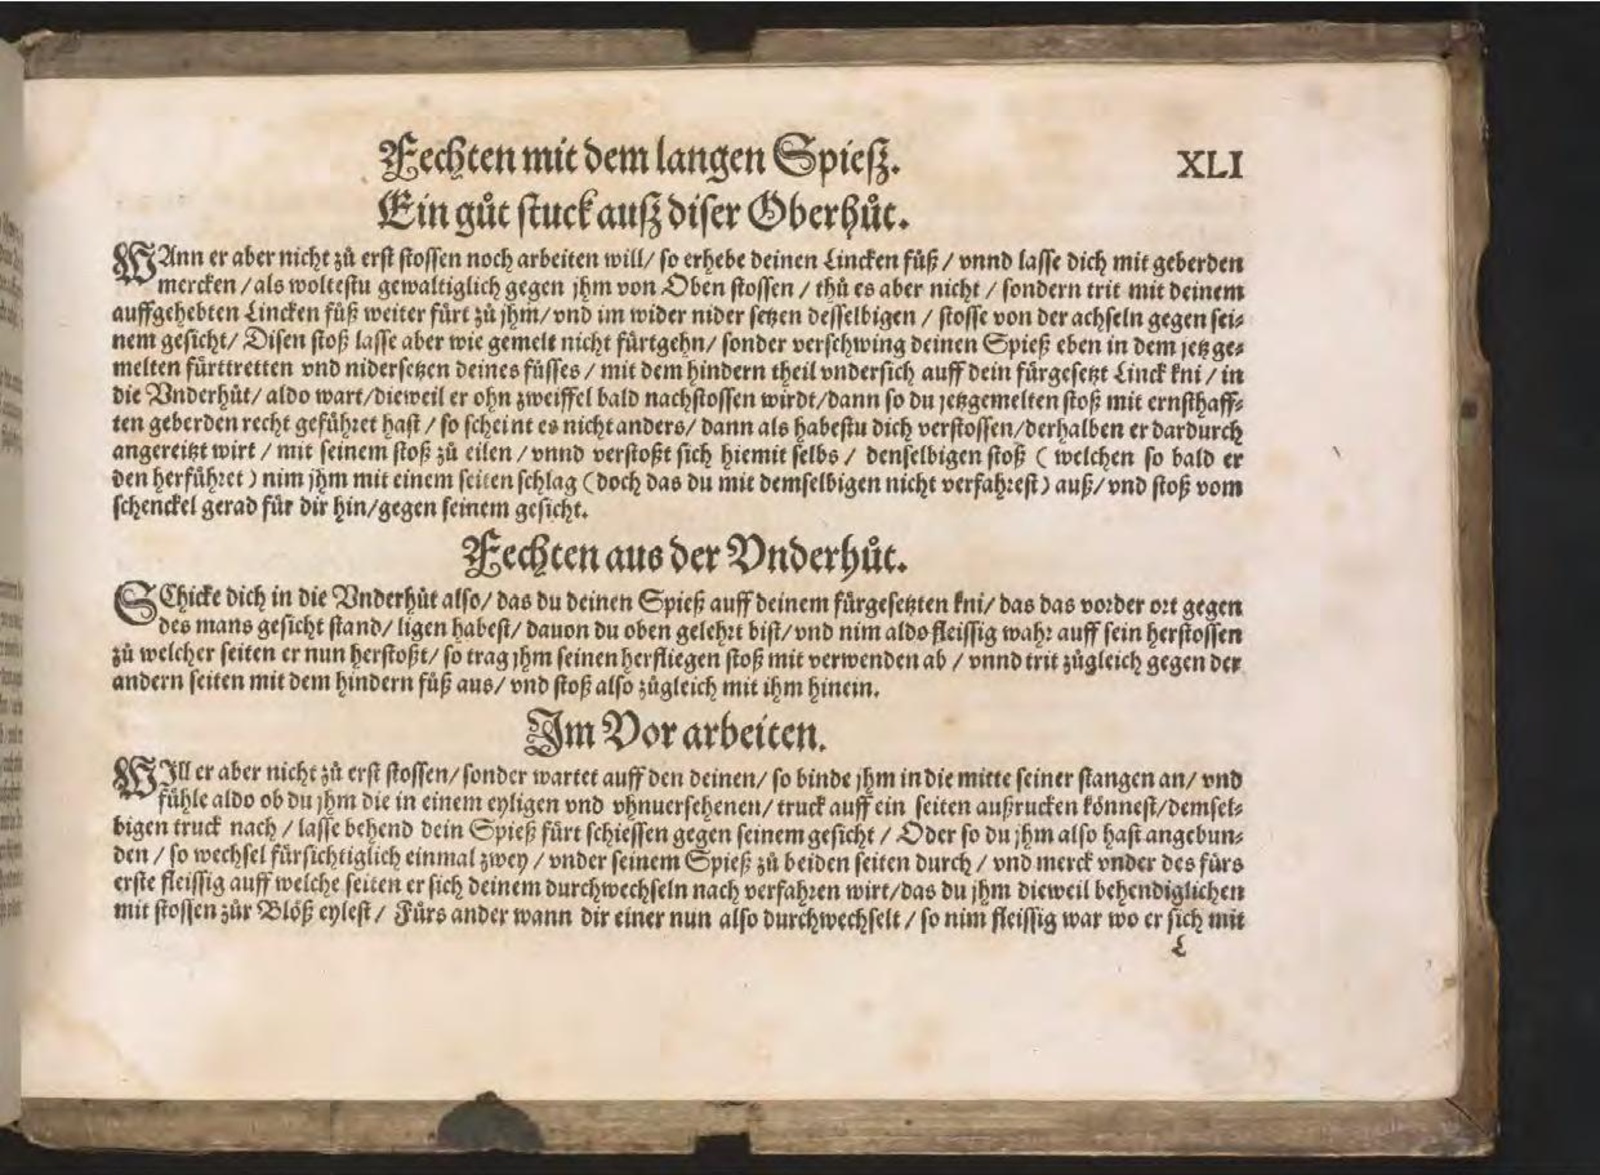 Fechten mit dem langen Spieß. XLI
Ein gůt stuck auß diser Oberhůt.
WAnn er aber nicht zů erst stossen noch arbeiten will/ so erhebe deinen Lincken fůß/ vnnd lasse dich mit geberden
mercken/ als woltestu gewaltiglich gegen jhm von Oben stossen/ thů es aber nicht/ sondern trit mit deinem
auffgehebten Lincken fůß weiter fürt zů jhm/ vnd im wider nider setzen desselbigen/ stosse von der achseln gegen sei-
nem gesicht/ Disen stoß lasse aber wie gemelt nicht fürtgehn/ sonder verschwing deinen Spieß eben in dem jetzge-
melten fürttretten vnd nidersetzen deines fůsses/ mit dem hindern theil vndersich auff dein fürgesetzt Linck kni/ in
die Vnderhůt/ aldo wart/ dieweil er ohn zweiffel bald nachstossen wirdt/ dann so du jetzgemelten stoß mit ernsthaff-
ten geberden recht geführet hast/ so scheint es nicht anders/ dann als habestu dich verstossen/ derhalben er dardurch
angereitzt wirt/ mit seinem stoß zů eilen/ vnnd verstoßt sich hiemit selbs/ denselbigen stoß (welchen so bald er
den herführet) nim jhm mit einem seiten schlag (doch das du mit demselbigen nicht verfahrest) auß/ vnd stoß vom
schenckel gerad für dir hin/ gegen seinem gesicht.
Fechten aus der Vnderhůt.
SChicke dich in die Vnderhůt also/ das du deinen Spieß auff deinem fürgesetzten kni/ das das vorder ort gegen
des mans gesicht stand/ ligen habest/ dauon du oben gelehrt bist/ vnd nim aldo fleissig wahr auff sein herstossen
zů welcher seiten er nun herstoßt/ so trag jhm seinen herfliegen stoß mit verwenden ab/ vnnd trit zůgleich gegen der
andern seiten mit dem hindern fůß aus/ vnd stoß also zůgleich mit ihm hinein.
Im Vor arbeiten.
WIll er aber nicht zů erst stossen/ sonder wartet auff den deinen/ so binde jhm in die mitte seiner stangen an/ vnd
fühle aldo ob du jhm die in einem eyligen vnd vhnuersehenen/ truck auff ein seiten außrucken könnest/ demsel-
bigen truck nach/ lasse behend dein Spieß fürt schiessen gegen seinem gesicht/ Oder so du jhm also hast angebun-
den/ so wechsel fürsichtiglich einmal zwey/ vnder seinem Spieß zů beiden seiten durch/ vnd merck vnder des fürs
erste fleissig auff welche seiten er sich deinem durchwechseln nach verfahren wirt/ das du jhm dieweil behendiglichen
mit stossen zůr Blöß eylest/ Fürs ander wann dir einer nun also durchwechselt/ so nim fleissig war wo er sich mit
L